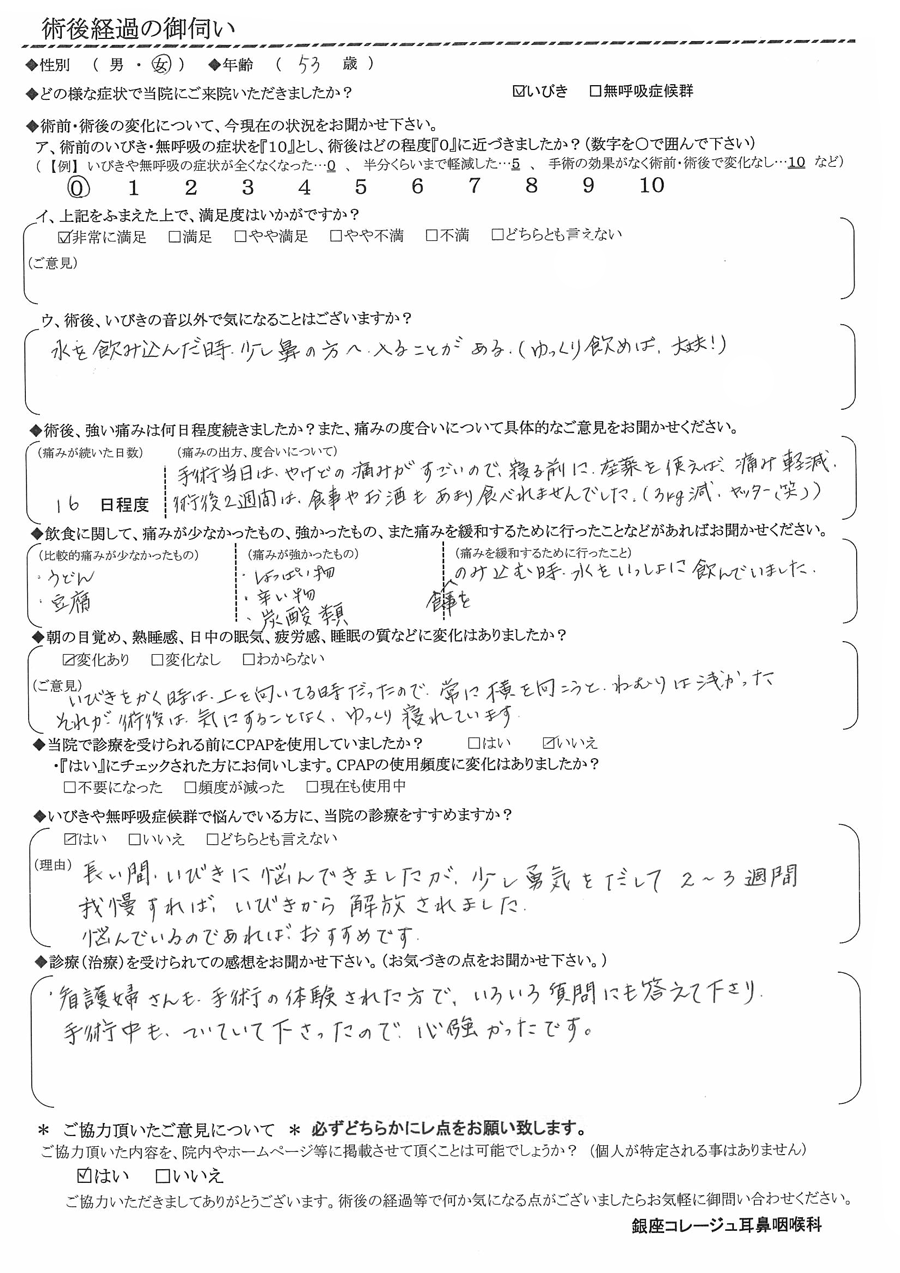 術後経過の御伺い
◆性別 ( 男 ・ 女 ) ◆年齢 ( 53 歳 )
◆どの様な症状で当院にご来院いただきましたか? ☑いびき □無呼吸症候群
◆術前・術後の変化について、今現在の状況をお聞かせ下さい。
ア、術前のいびき・無呼吸の症状を『10』とし、術後はどの程度『0』に近づきましたか?(数字を○で囲んで下さい)
(【例】いびきや無呼吸の症状が全くなくなった…0 、 半分くらいまで軽減した…5 、 手術の効果がなく術前・術後で変化なし…10 など)
0 1 2 3 4 5 6 7 8 9 10
イ、上記をふまえた上で、満足度はいかがですか?
☑非常に満足 □満足 □やや満足 □やや不満 □不満 □どちらとも言えない
(ご意見)
ウ、術後、いびきの音以外で気になることはございますか?
水を飲み込んだ時、少し鼻の方へ入ることがある。(ゆっくり飲めば、大丈夫!)
◆術後、強い痛みは何日程度続きましたか?また、痛みの度合いについて具体的なご意見をお聞かせください。
(痛みが続いた日数) (痛みの出方、度合いについて)
手術当日は、やけどの痛みがすごいので、寝る前に、座薬を使えば、痛み軽減。
16 日程度 術後2週間は、食事やお酒もあまり食べれませんでした。(3kg減、ヤッター(笑))
◆飲食に関して、痛みが少なかったもの、強かったもの、また痛みを緩和するために行ったことなどがあればお聞かせください。
(比較的痛みが少なかったもの) (痛みが強かったもの) (痛みを緩和するために行ったこと)
・うどん ・しょっぱい物 のみ込む時、水をいっしょに飲んでいました。
・豆腐 ・辛い物 食事を
・炭酸類
◆朝の目覚め、熟睡感、日中の眠気、疲労感、睡眠の質などに変化はありましたか?
☑変化あり □変化なし □わからない
(ご意見) いびきをかく時は、上を向いてる時だったので、常に横を向こうと、ねむりは浅かった
それが、術後は、気にすることなく、ゆっくり寝れています。
◆当院で診療を受けられる前にCPAPを使用していましたか? □はい ☑いいえ
・『はい』にチェックされた方にお伺いします。CPAPの使用頻度に変化はありましたか?
□不要になった □頻度が減った □現在も使用中
◆いびきや無呼吸症候群で悩んでいる方に、当院の診療をすすめますか?
☑はい □いいえ □どちらとも言えない
(理由) 長い間、いびきに悩んできましたが、少し勇気をだして2~3週間
我慢すれば、いびきから解放されました。
悩んでいるのであれば、おすすめです。
◆診療(治療)を受けられての感想をお聞かせ下さい。(お気づきの点をお聞かせ下さい。)
・看護婦さんも、手術の体験された方で、いろいろ質問にも答えて下さり、
手術中も、ついていて下さったので、心強かったです。
* ご協力頂いたご意見について * 必ずどちらかにレ点をお願い致します。
ご協力頂いた内容を、院内やホームページ等に掲載させて頂くことは可能でしょうか? (個人が特定される事はありません)
☑はい □いいえ
ご協力いただきましてありがとうございます。術後の経過等で何か気になる点がございましたらお気軽に御問い合わせください。
銀座コレージュ耳鼻咽喉科